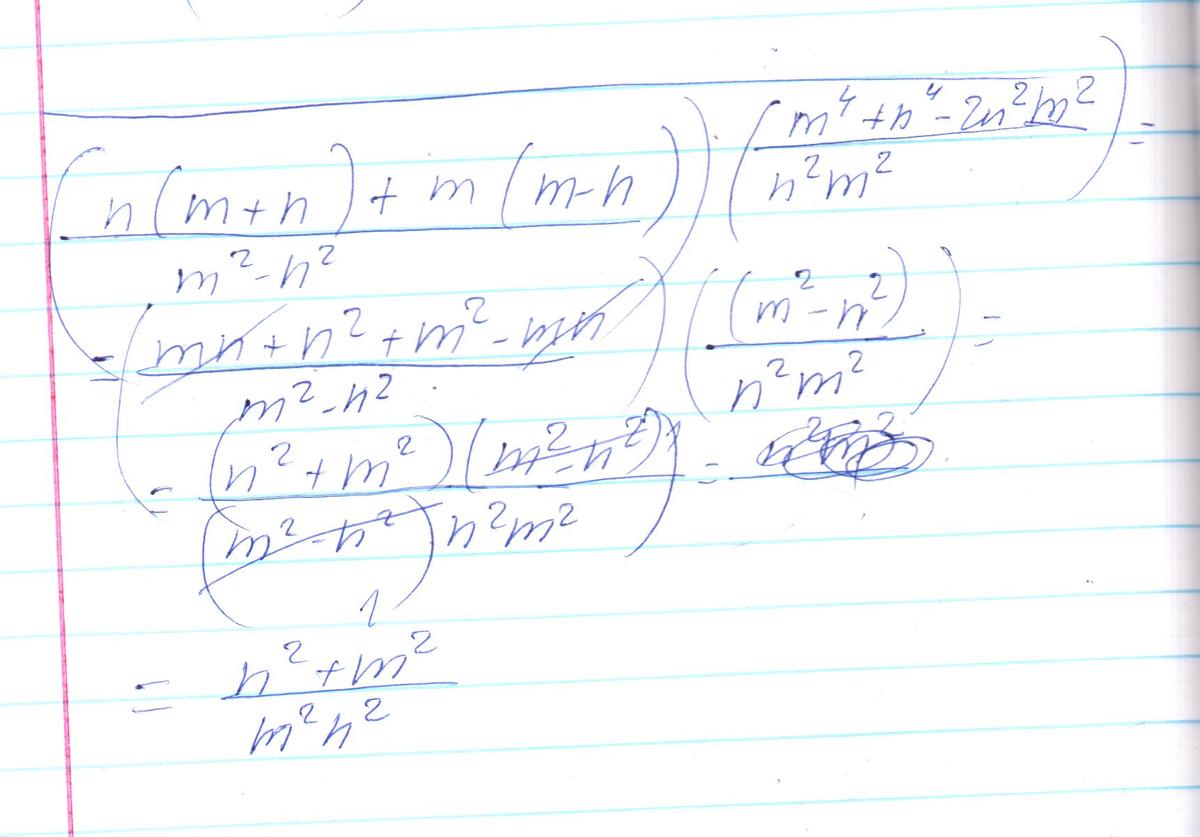 (n(m+n)+m(m-n))/(m²-n²) · ((m⁴+n⁴-2n²m²)/(n²m²)) =
= ((mn+n²+m²-mn)/(m²-n²)) ((m²-n²)/(n²m²)) =
= ((n²+m²)(m²-n²) 1)/((m²-n²) n²m²) =
1
= (n²+m²)/(m²n²)